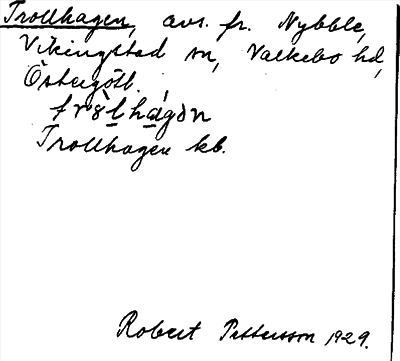 Trollhagen, avs. fr. Nybble,
Vikingstad sn, Valkebo hd,
Östergötl.
Trollhagen kb.
Robert Pettersson 1929.